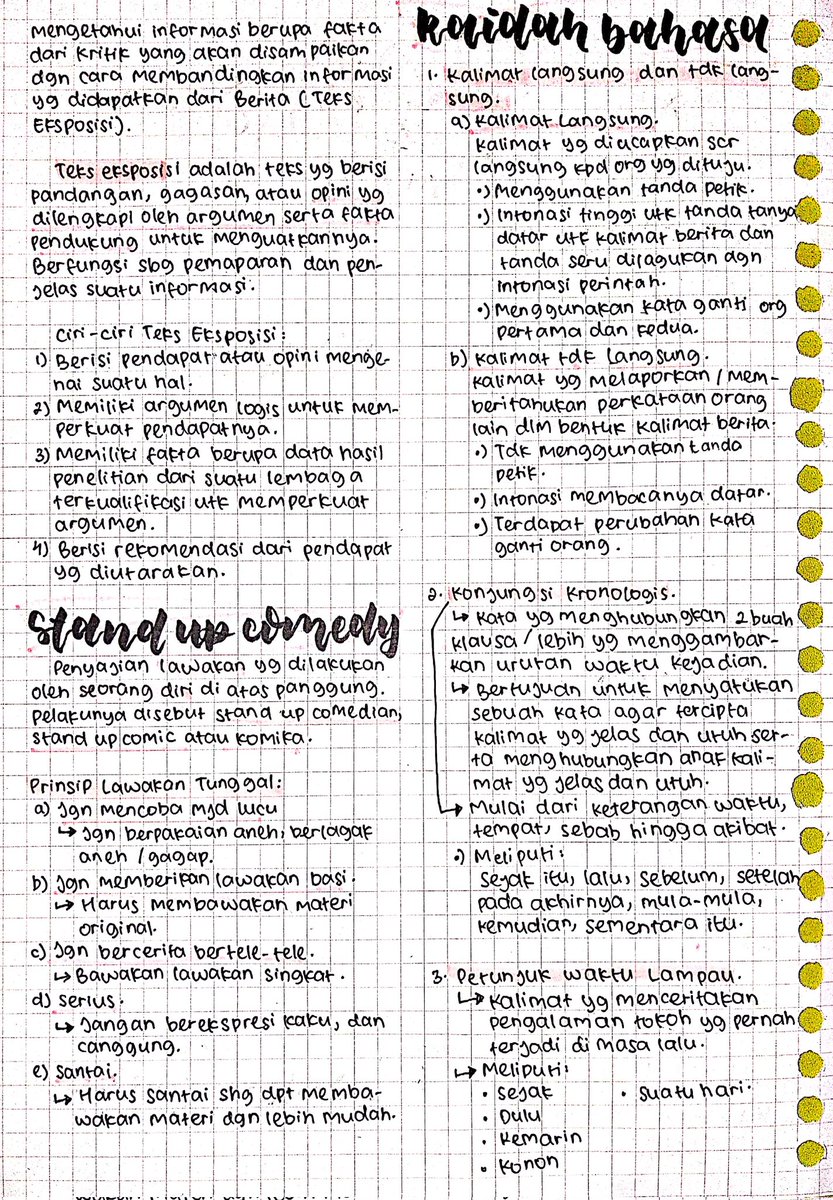 mengetahui informasi berupa fakta
dari kritik yang akan disampaikan
dgn cara membandingkan informasi
yg didapatkan dari Berita (Teks
Eksposisi).
Teks eksposisi adalah teks yg berisi
pandangan, gagasan, atau opini yg
dilengkapi oleh argumen serta fakta
pendukung untuk menguatkannya.
Berfungsi sbg pemaparan dan pen-
jelas suatu informasi.
Ciri-ciri Teks Eksposisi:
1) Berisi pendapat atau opini menge-
nai suatu hal.
2) Memiliki argumen logis untuk mem-
perkuat pendapatnya.
3) Memiliki fakta berupa data hasil
penelitian dari suatu lembaga
terkualifikasi utk memperkuat
argumen.
4) Berisi rekomendasi dari pendapat
yg diutarakan.
stand up comedy
Penyajian lawakan yg dilakukan
oleh seorang diri di atas panggung.
Pelakunya disebut stand up comedian,
stand up comic atau komika.
Prinsip Lawakan Tunggal:
a) Jgn mencoba mjd lucu
↳ Jgn berpakaian aneh, berlagak
aneh /gagap.
b) Jgn memberikan lawakan basi.
↳ Harus membawakan materi
original.
c) Jgn bercerita bertele-tele.
↳ Bawakan lawakan singkat.
d) Serius.
↳ Jangan berekspresi kaku, dan
canggung.
e) Santai.
↳ Harus santai shg dpt memba-
wakan materi dgn lebih mudah.
kaidah bahasa
1. Kalimat langsung dan tdk lang-
sung.
a) Kalimat Langsung.
Kalimat yg diucapkan scr
langsung kpd org yg dituju.
•) Menggunakan tanda petik.
•) Intonasi tinggi utk tanda tanya
datar utk kalimat berita dan
tanda seru dilagukan dgn
intonasi perintah.
•) Menggunakan kata ganti org
pertama dan kedua.
b) Kalimat tdk Langsung.
Kalimat yg melaporkan / mem-
beritahukan perkataan orang
lain dlm bentuk kalimat berita.
•) Tdk menggunakan tanda
petik.
•) Intonasi membacanya datar.
•) Terdapat perubahan kata
ganti orang.
2. Konjungsi Kronologis.
↳ Kata yg menghubungkan 2 buah
klausa / lebih yg menggambar-
kan urutan waktu kejadian.
↳ Bertujuan untuk menyatukan
sebuah kata agar tercipta
kalimat yg jelas dan utuh ser-
ta menghubungkan anak kali-
mat yg jelas dan utuh.
→ Mulai dari keterangan waktu,
tempat, sebab hingga akibat.
•) Meliputi:
Sejak itu, lalu, sebelum, setelah
pada akhirnya, mula-mula,
kemudian, sementara itu.
3. Petunjuk waktu Lampau.
↳ Kalimat yg menceritakan
pengalaman tokoh yg pernah
terjadi di masa lalu.
↳ Meliputi:
• Sejak • Suatu hari.
• Dulu
• Kemarin
• Konon